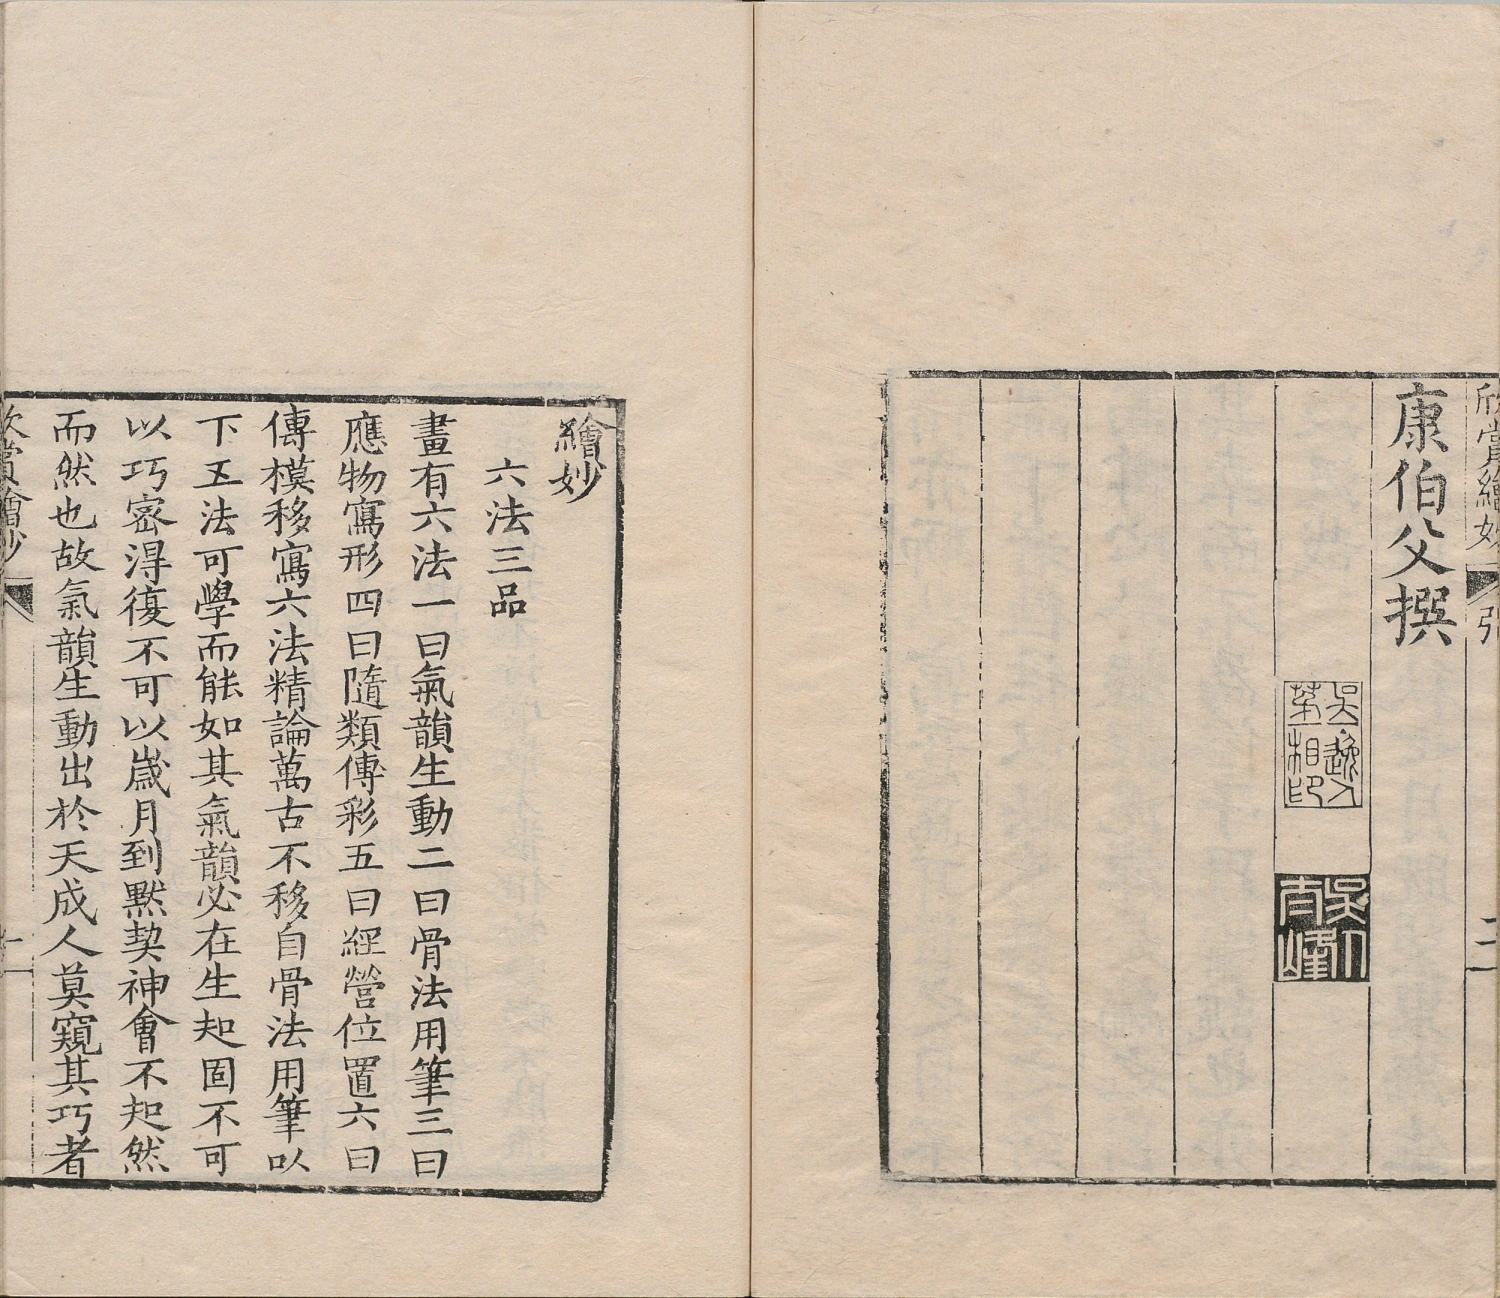 欣賞繪妙 引 二
康伯父撰
繪妙
六法三品
畫有六法一曰氣韻生動二曰骨法用筆三曰
應物寫形四曰隨類傅彩五曰經營位置六曰
傳模移寫六法精論萬古不移自骨法用筆以
下五法可學而能如其氣韻必在生知固不可
以巧密淂復不可以歲月到默契神會不知然
而然也故氣韻生動出於天成人莫窺其巧者
欣賞繪妙 一